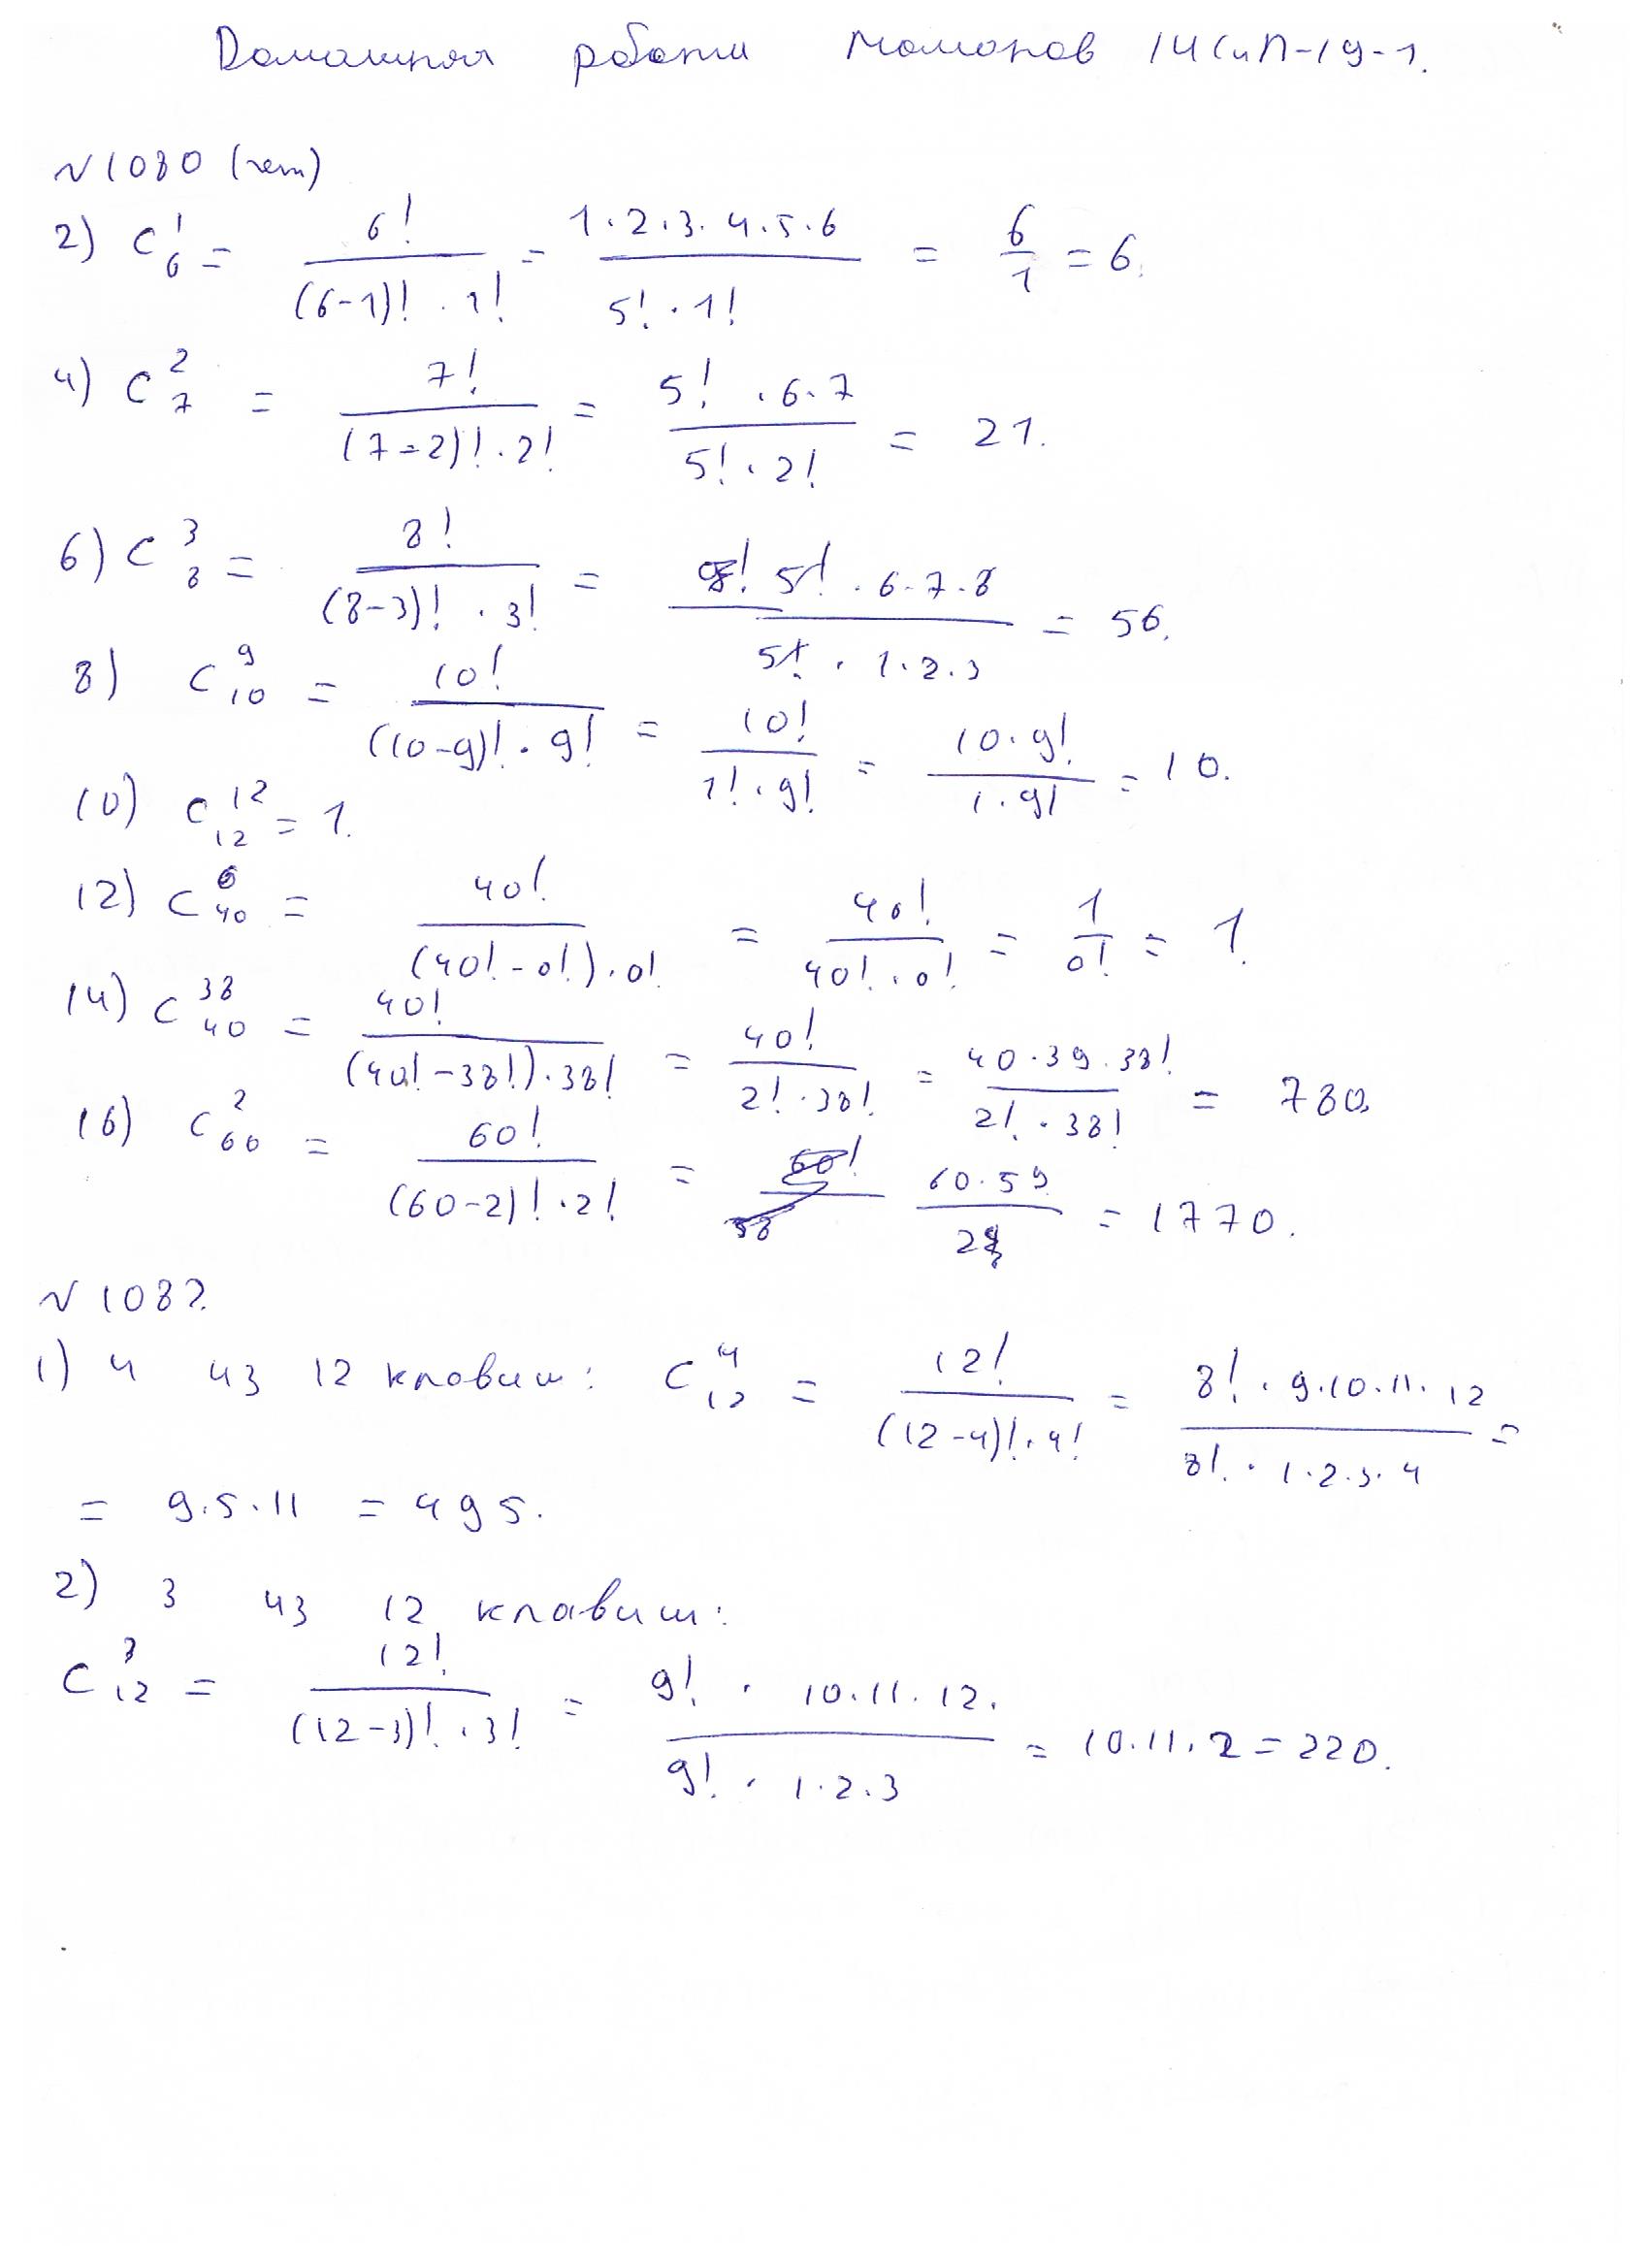 Домашняя работа Мамонов 1ИСиП-19-1.
№1080 (чет)
2) C_6^1 = 6! / ((6-1)! · 1!) = 1·2·3·4·5·6 / (5! · 1!) = 6/1 = 6.
4) C_7^2 = 7! / ((7-2)! · 2!) = 5! · 6·7 / (5! · 2!) = 21.
6) C_8^3 = 8! / ((8-3)! · 3!) = 5! · 6·7·8 / (5! · 1·2·3) = 56.
8) C_10^9 = 10! / ((10-9)! · 9!) = 10! / (1! · 9!) = 10·9! / (1·9!) = 10.
10) C_12^12 = 1.
12) C_40^0 = 40! / ((40!-0!)·0!) = 40! / (40!·0!) = 1/0! = 1.
14) C_40^38 = 40! / ((40!-38!)·38!) = 40! / (2!·38!) = 40·39·38! / (2!·38!) = 780.
16) C_60^2 = 60! / ((60-2)!·2!) = 60·59 / 2 = 1770.
№1082.
1) 4 из 12 клавиш: C_12^4 = 12! / ((12-4)!·4!) = 8!·9·10·11·12 / (8!·1·2·3·4) =
= 9·5·11 = 495.
2) 3 из 12 клавиш:
C_12^3 = 12! / ((12-3)!·3!) = 9! · 10·11·12. / (9! · 1·2·3) = 10·11·2 = 220.